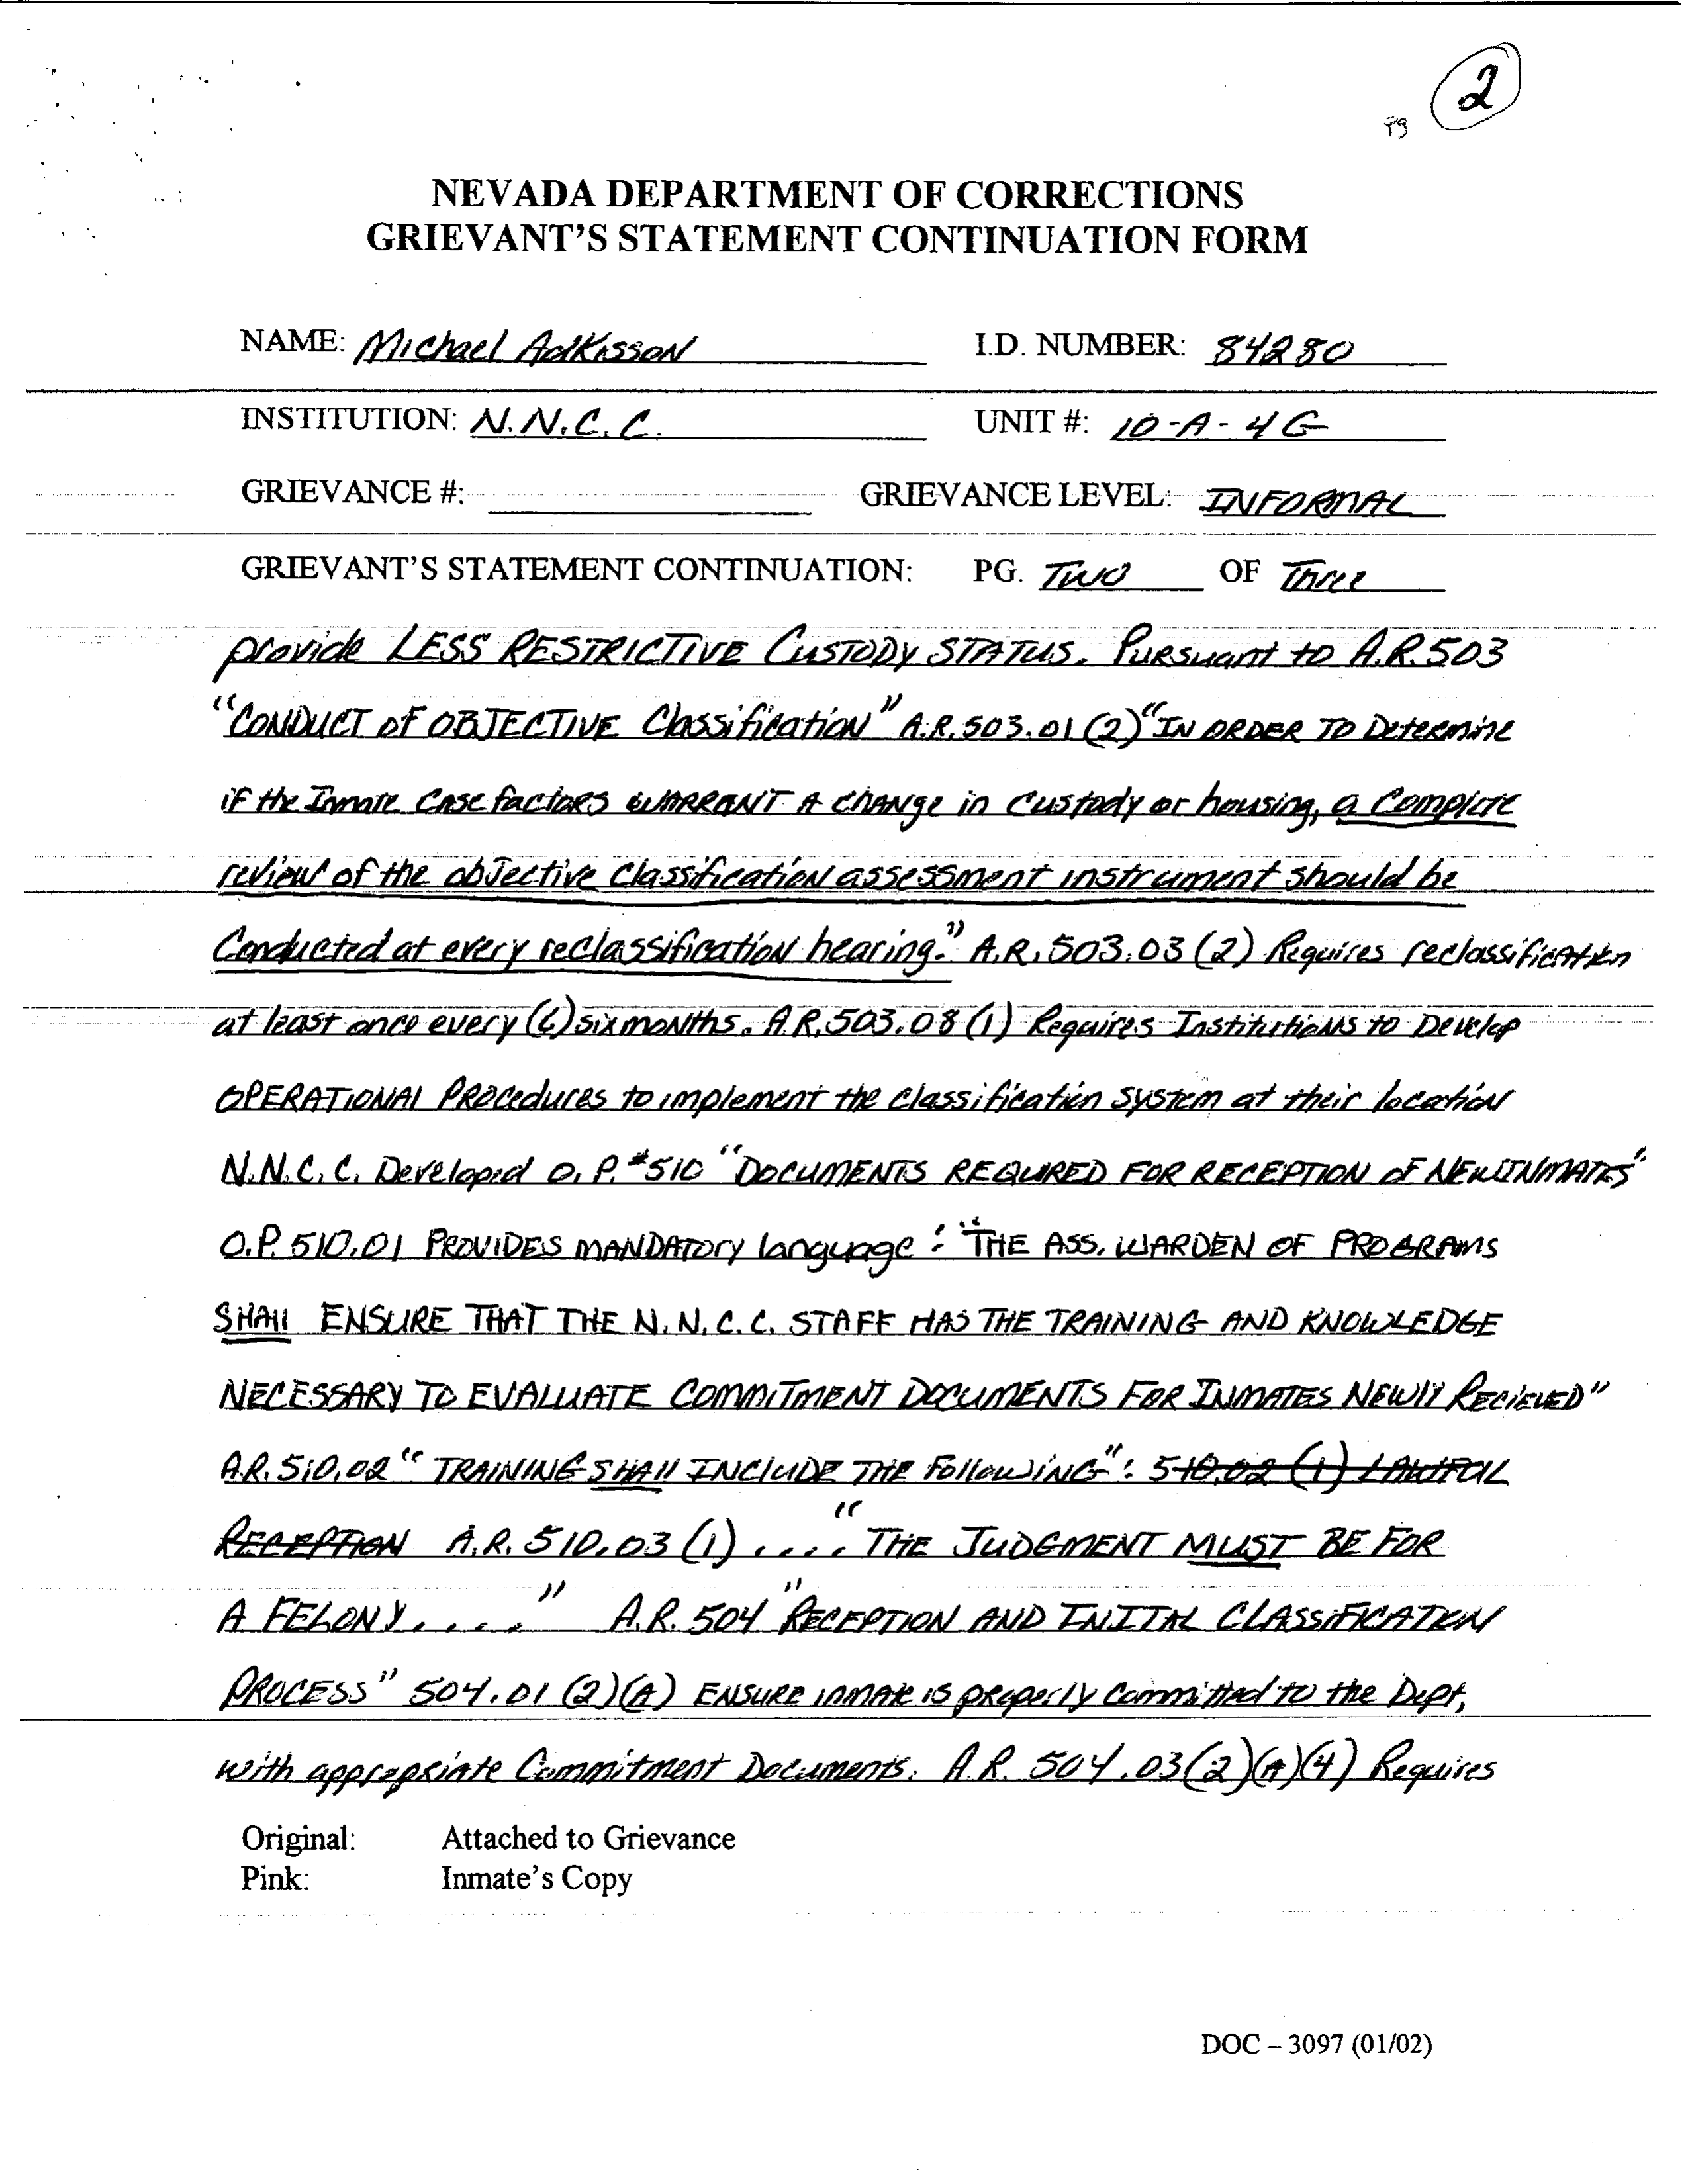 2
pg
NEVADA DEPARTMENT OF CORRECTIONS
GRIEVANT'S STATEMENT CONTINUATION FORM
NAME: Michael Adkisson I.D. NUMBER: 84280
INSTITUTION: N.N.C.C. UNIT #: 10-A-4G
GRIEVANCE #: GRIEVANCE LEVEL: INFORMAL
GRIEVANT'S STATEMENT CONTINUATION: PG. TWO OF Three
provide LESS RESTRICTIVE CUSTODY STATUS. PURSUANT to A.R. 503
"CONDUCT OF OBJECTIVE Classification" A.R. 503.01 (2) "IN ORDER TO Determine
if the Inmate Case factors WARRANT A CHANGE in custody or housing, a Complete
review of the objective classification assessment instrument should be
Conducted at every reclassification hearing." A.R. 503.03 (2) Requires reclassification
at least once every (6) six months. A.R. 503.08 (1) Requires Institutions to Develop
OPERATIONAL PROcedures to implement the classification system at their location
N.N.C.C. Developed O.P. #510 "DOCUMENTS REQUIRED FOR RECEPTION OF NEW INMATES"
O.P. 510.01 PROVIDES MANDATORY language: "THE ASS. WARDEN OF PROGRAMS
SHALL ENSURE THAT THE N.N.C.C. STAFF HAS THE TRAINING AND KNOWLEDGE
NECESSARY TO EVALUATE COMMITMENT DOCUMENTS FOR INMATES NEWLY RECIEVED"
A.R. 510.02 "TRAINING SHALL INCLUDE THE FOLLOWING": 510.02 (1) LAWFUL
RECEPTION A.R. 510.03 (1) .... "THE JUDGMENT MUST BE FOR
A FELONY...." A.R. 504 "RECEPTION AND INITAL CLASSIFICATION
PROCESS" 504.01 (2)(A) ENSURE inmate is properly committed to the Dept,
with appropriate Commitment Documents. A.R. 504.03(2)(A)(4) Requires
Original: Attached to Grievance
Pink: Inmate's Copy
DOC – 3097 (01/02)